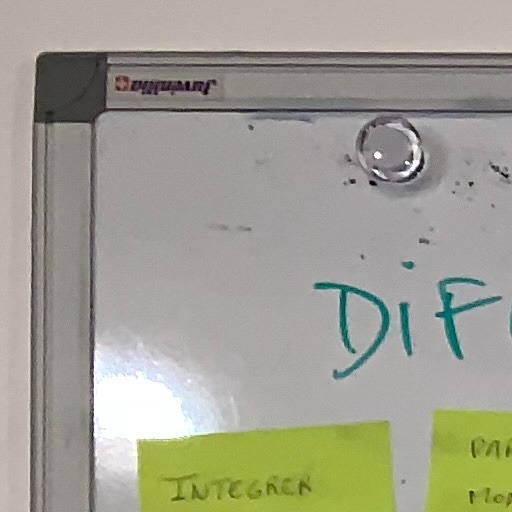 Juvenilia
DiF
INTEGRER
PAR
MON